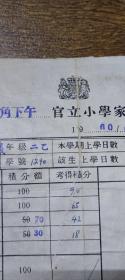 下午 官立小學家
19 60/
年級 二乙 本學期上學日數
學號 1240 該生上學日數
積分額 考得積分
100 90
100 65
50 70 42
50 30 18
100